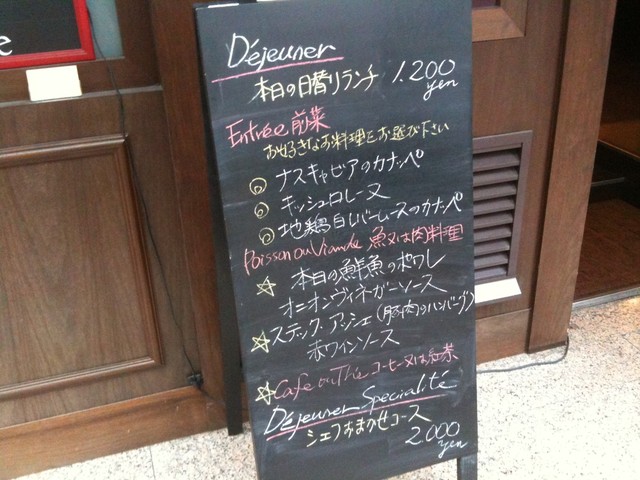 e
Déjeuner
本日の日替りランチ 1,200
yen
Entrée 前菜
お好きなお料理をお選び下さい
◎ ナスキャビアのカナッペ
◎ キッシュロレーヌ
◎ 地鶏白レバームースのカナッペ
Poisson ou Viande 魚又は肉料理
☆ 本日の鮮魚のポワレ
オニオンヴィネガーソース
☆ ステック・アッシェ(豚肉のハンバーグ)
赤ワインソース
☆ Cafe ou Thé コーヒー又は紅茶
Déjeuner Spécialité
シェフおまかせコース
2,000
yen